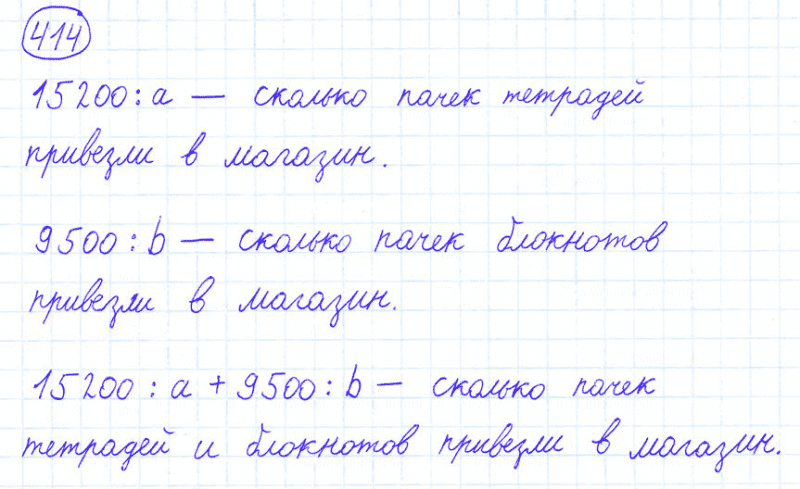 414
15200 : a — сколько пачек тетрадей
привезли в магазин.
9500 : b — сколько пачек блокнотов
привезли в магазин.
15200 : a + 9500 : b — сколько пачек
тетрадей и блокнотов привезли в магазин.